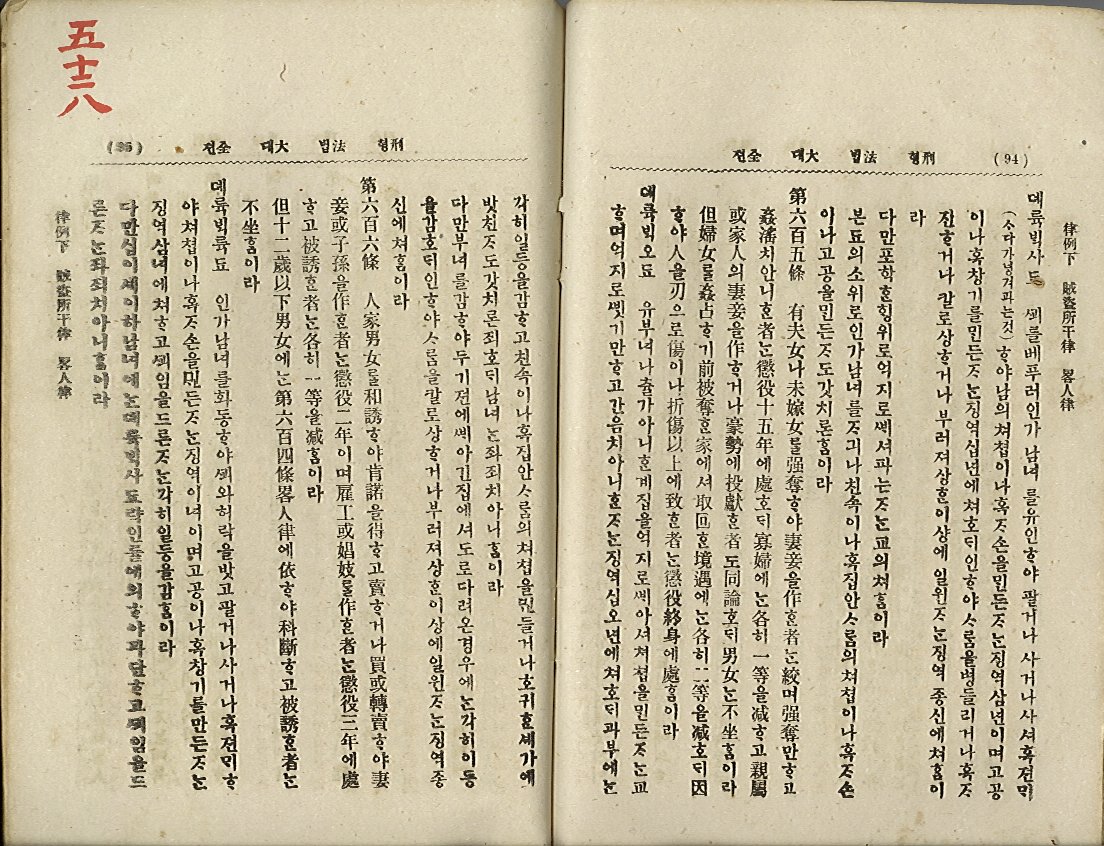 (94) 刑형 法법 大대 全전
律例下 賊盜所干律 畧人律
뎨륙빅사됴 ᄭᅬ를베푸러인가남녀를유인ᄒᆞ야팔거나사거나사셔혹젼ᄆᆡ
(ᄉᆞ다가넝겨파는것)ᄒᆞ야남의쳐쳡이나혹ᄌᆞ손을민든ᄌᆞᄂᆞᆫ징역삼년이며고공
이나혹창기를민든ᄌᆞᄂᆞᆫ징역십년에쳐호ᄃᆡ인ᄒᆞ야ᄉᆞᄅᆞᆷ을병들리거나혹ᄌᆞ
진ᄒᆞ거나칼로상ᄒᆞ거나부러져상ᄒᆞᆫ이상에일윈ᄌᆞᄂᆞᆫ징역죵신에쳐홈이
라
다만포학ᄒᆞᆫᄒᆡᆼ위로억지로ᄲᅢ셔파는ᄌᆞᄂᆞᆫ교의쳐홈이라
본됴의소위로인가남녀를ᄌᆞ긔나친속이나혹집안ᄉᆞᄅᆞᆷ의쳐쳡이나혹ᄌᆞ손
아나고공을민든ᄌᆞ도갓치로홈이라
第六百五條 有夫女나未嫁女ᄅᆞᆯ强奪ᄒᆞ야妻妾을作ᄒᆞᆫ者ᄂᆞᆫ絞며强奪만ᄒᆞ고
姦淫치안니ᄒᆞᆫ者ᄂᆞᆫ懲役十五年에處호ᄃᆡ寡婦에ᄂᆞᆫ各히一等을減ᄒᆞ고親屬
或家人의妻妾을作ᄒᆞ거나豪勢에投獻ᄒᆞᆫ者도同論호ᄃᆡ男女ᄂᆞᆫ不坐홈이라
但婦女ᄅᆞᆯ姦占ᄒᆞ기前被奪ᄒᆞᆫ家에셔取回ᄒᆞᆫ境遇에ᄂᆞᆫ各히二等을減호ᄃᆡ因
ᄒᆞ야人을刃으로傷이나折傷以上에致ᄒᆞᆫ者ᄂᆞᆫ懲役終身에處홈이라
뎨륙ᄇᆡᆨ오됴 유부녀나츌가아니ᄒᆞᆫ계집을억지로ᄲᅢ아셔쳐쳡을민든ᄌᆞᄂᆞᆫ교
ᄒᆞ며억지로ᄲᅢᆺ기만ᄒᆞ고간음치아니ᄒᆞᆫᄌᆞᄂᆞᆫ징역십오년에쳐호ᄃᆡ과부에ᄂᆞᆫ
五十二八
刑형 法법 大대 全전
각히일등을감ᄒᆞ고친속이나혹집안ᄉᆞᄅᆞᆷ의쳐쳡을민들거나호귀ᄒᆞᆫ셰가에
밧친ᄌᆞ도갓치론죄호ᄃᆡ남녀ᄂᆞᆫ좌죄치아니홈이라
다만부녀를감ᄒᆞ야두기젼에ᄲᅢ아긴집에셔도로다려온경우에ᄂᆞᆫ각히이등
을감호ᄃᆡ인ᄒᆞ야ᄉᆞᄅᆞᆷ을칼로상ᄒᆞ거나부러져상ᄒᆞᆫ이상에일윈ᄌᆞᄂᆞᆫ징역죵
신에쳐홈이라
第六百六條 人家男女ᄅᆞᆯ和誘ᄒᆞ야肯諾을得ᄒᆞ고賣ᄒᆞ거나買或轉賣ᄒᆞ야妻
妾或子孫을作ᄒᆞᆫ者ᄂᆞᆫ懲役二年이며雇工或娼妓ᄅᆞᆯ作ᄒᆞᆫ者ᄂᆞᆫ懲役三年에處
ᄒᆞ고被誘ᄒᆞᆫ者ᄂᆞᆫ各히一等을減홈이라
但十二歲以下男女에ᄂᆞᆫ第六百四條畧人律에依ᄒᆞ야科斷ᄒᆞ고被誘ᄒᆞᆫ者ᄂᆞᆫ
不坐홈이라
뎨륙ᄇᆡᆨ륙됴 인가남녀를화동ᄒᆞ야ᄭᅬ와허락을밧고팔거나사거나혹젼ᄆᆡᄒᆞ
야쳐쳡이나혹ᄌᆞ손을민든ᄌᆞᄂᆞᆫ징역이녀이며고공이나혹창기를만든ᄌᆞᄂᆞᆫ
징역삼녀에쳐ᄒᆞ고ᄭᅬ임을드른ᄌᆞᄂᆞᆫ각히일등을감홈이라
다만십이셰이하남녀에ᄂᆞᆫ뎨륙ᄇᆡᆨ사됴략인률에의ᄒᆞ야과단ᄒᆞ고ᄭᅬ임을드
른ᄌᆞᄂᆞᆫ좌죄치아니홈이라
律例下 賊盜所干律 畧人律